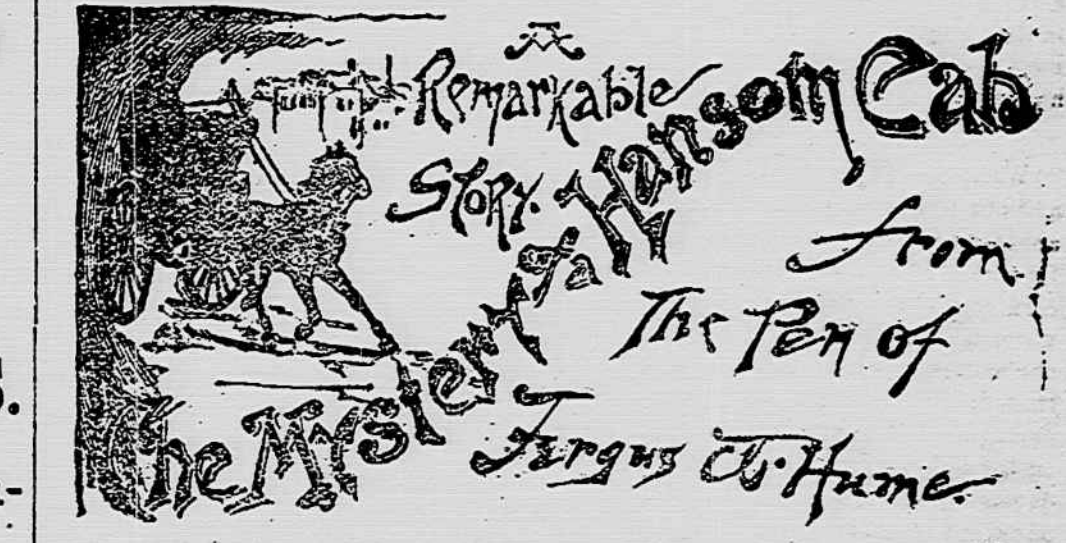 A
Remarkable
Story.
The Mystery of a Hansom Cab
from
The Pen of
Fergus W. Hume.